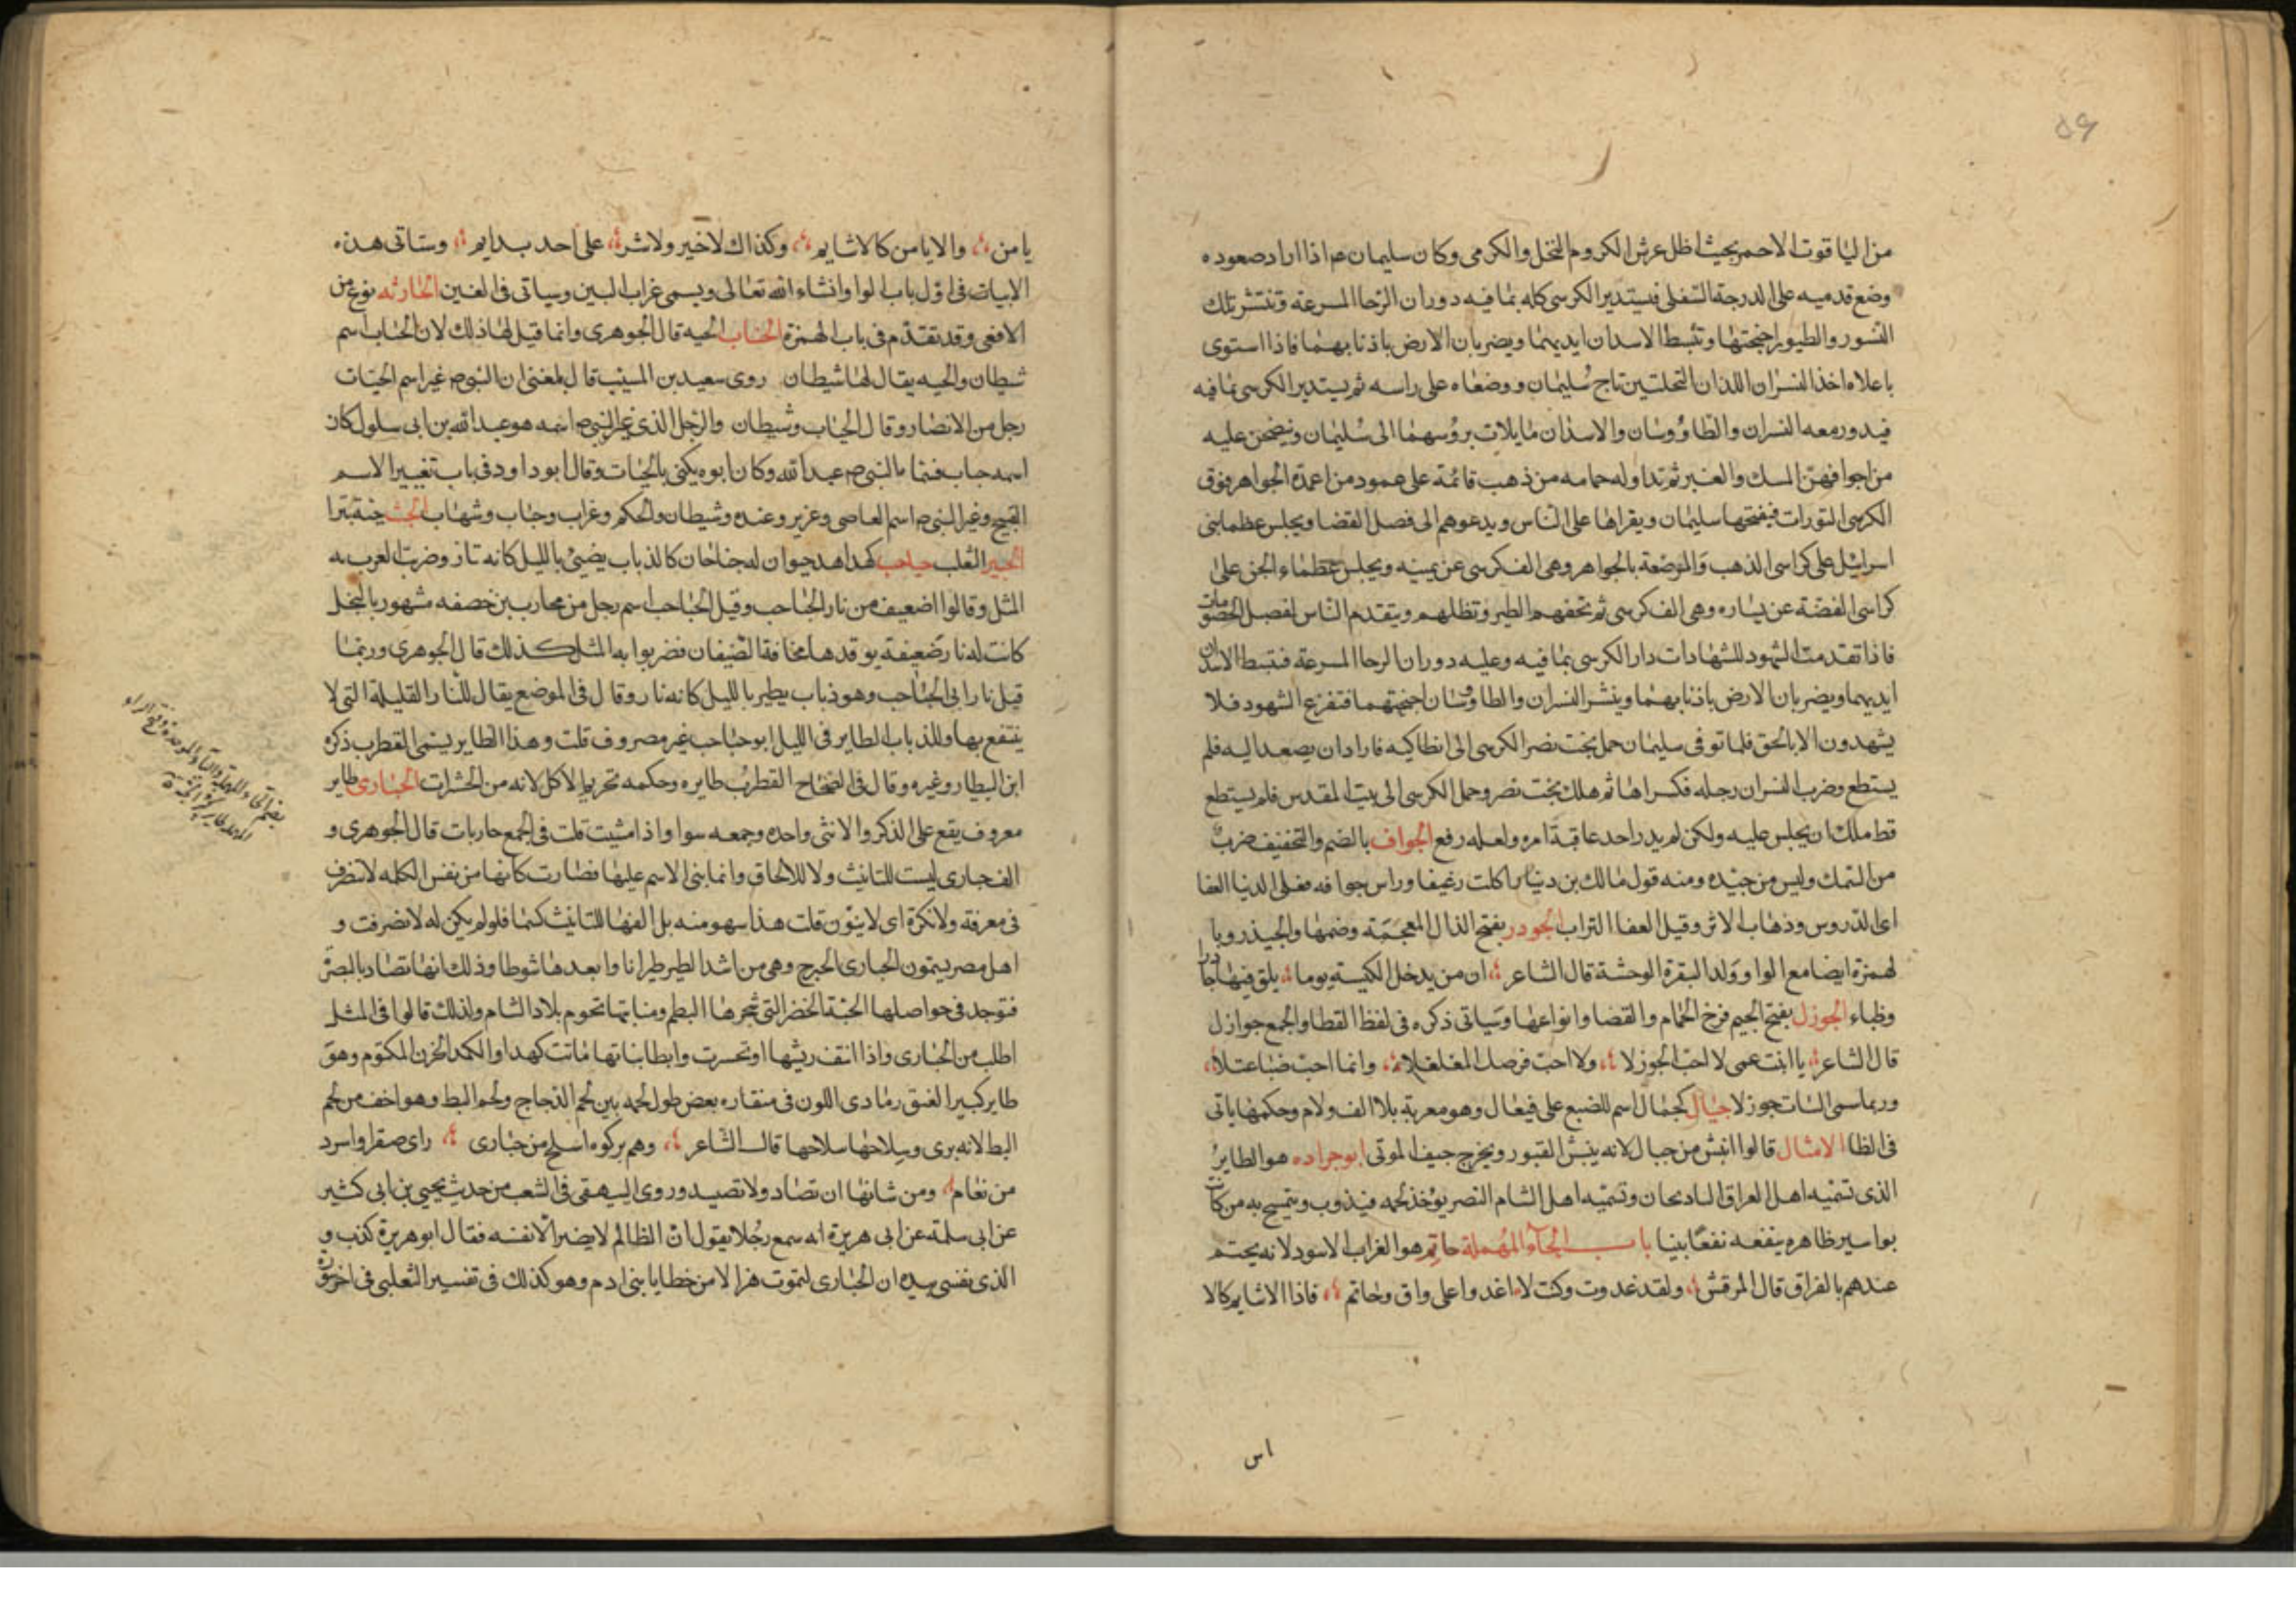 ٥٦
من الیاقوت الاحمر بحیث اظل عرش الکروم النخل والکرمی وکان سلیمان عم اذا اراد صعوده
وضع قدمیه علی الدرجة السفلی فیستدیر الکرسی کله بما فیه دوران الرحا المسرعة وتنتشر تلک
النسور والطیور اجنحتها وتبسط الاسدان ایدیهما ویضربان الارض باذنابهما فاذا استوی
باعلاه اخذ النسران اللذان النخلتین تاج سلیمان ووضعاه علی راسه ثم یستدیر الکرسی بما فیه
فیدور معه النسران والطاؤوسان والاسدان مایلات برؤسهما الی سلیمان وینضحن علیه
من اجوافهن المسک والعنبر ثم تداوله حمامه من ذهب قائمة علی عمود من اعمدة الجواهر فوق
الکرسی التورات فیفتحها سلیمان ویقراها علی الناس ویدعوهم الی فصل القضا ویجلس عظما بنی
اسرائیل علی کراسی الذهب والمرصعة بالجواهر وهی الف کرسی عن یمینه ویجلس عظماء الجن علی
کراسی الفضة عن یساره وهی الف کرسی ثم تحفهم الطیر وتظلهم ویتقدم الناس لفصل الخصومات
فاذا تقدمت الشهود للشهادات دار الکرسی بما فیه وعلیه دوران الرحا المسرعة فتبسط الاسدان
ایدیهما ویضربان الارض باذنابهما وینشر النسران والطاوسان اجنحتهما فتفزع الشهود فلا
یشهدون الا بالحق فلما توفی سلیمان حمل بخت نصر الکرسی الی انطاکیه فاراد ان یصعد الیه فلم
یستطع وضرب النسران رجله فکسراها ثم هلک بخت نصر وحمل الکرسی الی بیت المقدس فلم یستطع
قط ملک ان یجلس علیه ولکن لم یدر احد عاقبة امره ولعله رفع الجواف بالضم والتخفیف ضرب
من السمک ولیس من جیده ومنه قول مالک بن دینار اکلت رغیفا وراس جوافه فعلی الدنیا العفا
ای الدروس وذهاب الاثر وقیل العفا التراب الجوذر بفتح الذال المعجمة وضمها والجیذر وبا
لهمزة ایضا مع الواو ولد البقرة الوحشة قال الشاعر ان من یدخل الکنیسة یوما یلق فیها جاذرا
وظباء الجوزل بفتح الجیم فرخ الحمام والقضا وانواعها وسیاتی ذکره فی لفظ القطا والجمع جوازل
قال الشاعر یا ابنت عمی لا احب الجوزلا ولا احب قرصک المفلفلا وانما احب ضبا عتلا
وربما سمی الشاب جوزلا جیال کجمال اسم للضبع علی فیعال وهو معربة بلا الف ولام وحکمها یاتی
فی الظا الامثال قالوا انبش من جیال لانه ینبش القبور ویخرج جیف الموتی ابو جراده هو الطایر
الذی تسمیه اهل العراق البادنجان وتسمیه اهل الشام النصر یؤخذ لحمه فیذوب ویتمسح به من کان
بواسیر ظاهره ینفعه نفعا بینا باب الحاء المهملة حاتم هو الغراب الاسود لانه یحتم
عندهم بالفراق قال المرقش ولقد غدوت وکنت لا اغدوا علی واق وحاتم فاذا الاشایم کالا
یامن والایامن کالاشایم وکذاک لا خیر ولا شر علی احد بدایم وستاتی هذه
الابیات فی اول باب الواو انشاء الله تعالی ویسمی غراب البین وسیاتی فی الغین الحارثه نوع من
الافعی وقد تقدم فی باب الهمزة الحباب الحیه قال الجوهری وانما قیل لها ذلک لان الحباب اسم
شیطان والحیه یقال لها شیطان روی سعید بن المسیب قال بلغنی ان النبی ص غیر اسم الحباب
رجل من الانصار وقال الحباب وشیطان والرجل الذی غیر النبی ص اسمه هو عبد الله بن ابی سلول کان
اسمه حباب فسماه النبی ص عبد الله وکان ابوه یکنی بالحباب وقال ابو داود فی باب تغییر الاسم
القبیح وغیر النبی ص اسم العاصی وعزیر وعنده وشیطان والحکم وغراب وحباب وشهاب الحث حیة بترا
الحبیر الثعلب حباحب کهداهد حیوان له جناحان کالذباب یضیئ باللیل کانه نار وضربت العرب به
المثل وقالوا اضعیف من نار الحباحب وقیل الحباحب اسم رجل من محارب بن خصفه مشهور بالبخل
کانت له نار ضعیفة یوقدها مخافة الضیفان فضربوا به المثل کذلک قال الجوهری وربما
قیل نار ابی الحباحب وهو ذباب یطیر باللیل کانه نار وقال فی الموضع یقال للنار القلیلة التی لا
ینتفع بها وللذباب الطایر فی اللیل ابو حباحب غیر مصروف قلت وهذا الطایر یسمی القطرب ذکره
ابن البیطار وغیره وقال فی الصحاح القطرب طایره وحکمه تحریم الاکل لانه من الحشرات الحباری طایر
معروف یقع علی الذکر والانثی واحده وجمعه سوا واذا مشیت قلت فی الجمع حباریات قال الجوهری و
الف حباری لیست للتانیث ولا للالحاق وانما بنی الاسم علیها فصارت کانها من نفس الکلمه لا تنصرف
فی معرفة ولا نکرة ای لا ینون قلت هذا سهو منه بل الفها للتانیث کسما فلو لم یکن له لانصرفت و
اهل مصر یسمون الحباری الحبرج وهی من اشد الطیر طیرانا وابعدها شوطا وذلک انها تصاد بالبصرة
فتوجد فی حواصلها الحبة الخضر التی شجرها البطم ومنابتها تخوم بلاد الشام ولذلک قالوا فی المثل
اطلب من الحباری واذا انتف ریشها او تحسرت وابطا نباتها ماتت کهدا والکمد الحزن المکتوم وهو
طایر کبیر العنق رمادی اللون فی منقاره بعض طول لحمه بین لحم الدجاج ولحم البط وهو اخف من لحم
البط لانه بری وسلاحها سلاحها قال الشاعر وهم برکوه اسلح من حباری رای صقرا واسرد
من نعام ومن شانها ان تصاد ولا تصید وروی البیهقی فی الشعب من حدیث یحیی بن ابی کثیر
عن ابی سلمة عن ابی هریرة انه سمع رجلا یقول ان الظالم لا یضر الا نفسه فقال ابو هریرة کذب و
الذی نفسی بیده ان الحباری لتموت هزلا من خطایا بنی ادم وهو کذلک فی تفسیر الثعلبی فی اخر سورة
اس